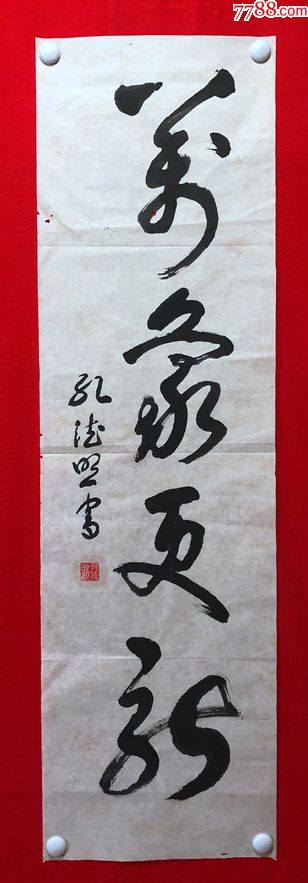 7788.com
萬象更新
孔德明書